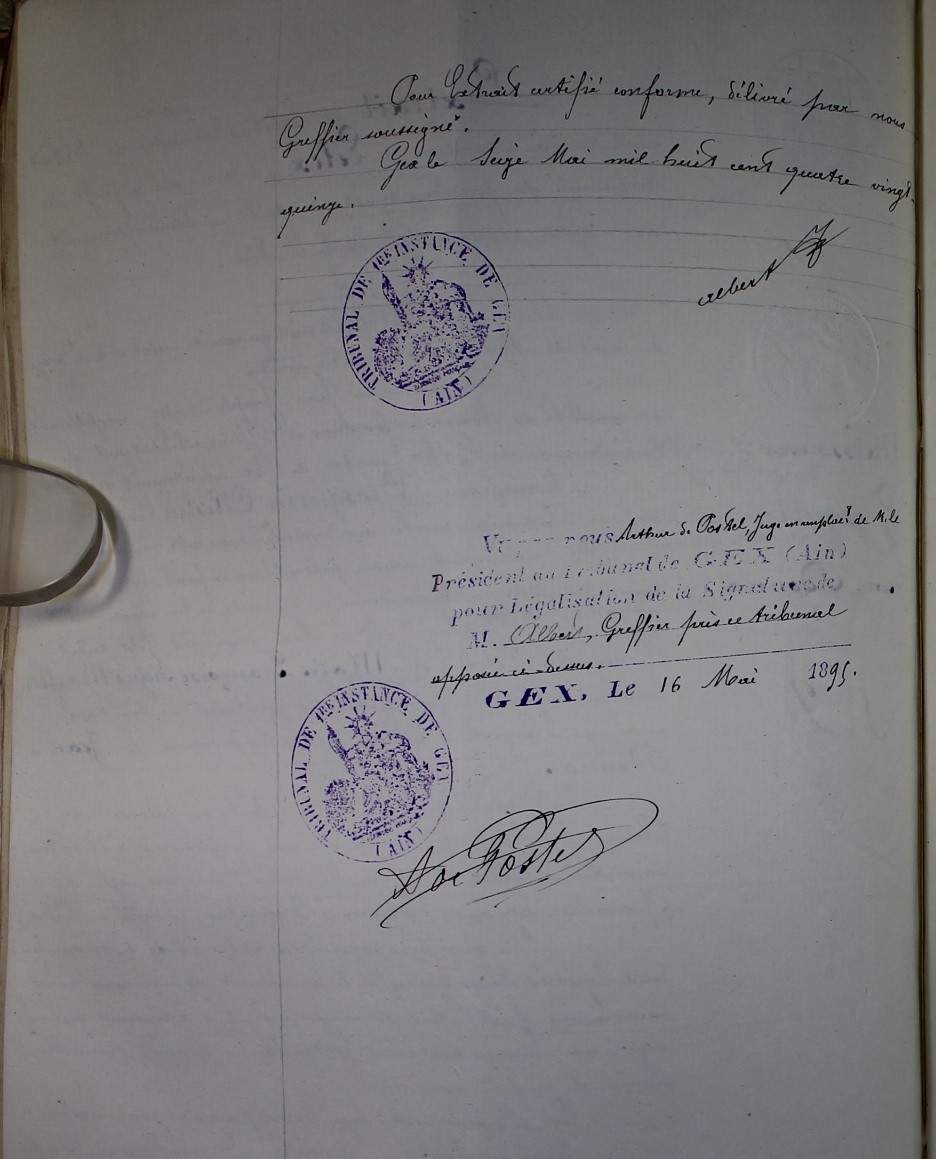 Pour Extrait certifié conforme, délivré par nous
Greffier soussigné.
Gex le Seize Mai mil huit cent quatre vingt
quinze.
albert
TRIBUNAL DE 1RE INSTANCE DE GEX
(AIN)
Vu par nous Arthur de Postel, Juge en remplact de M. le
Président du Tribunal de GEX (Ain)
pour Légalisation de la Signature de
M. Albert, Greffier près ce tribunal
apposée ci-dessus.
GEX, Le 16 Mai 1895.
TRIBUNAL DE 1RE INSTANCE DE GEX
(AIN)
A de Postel